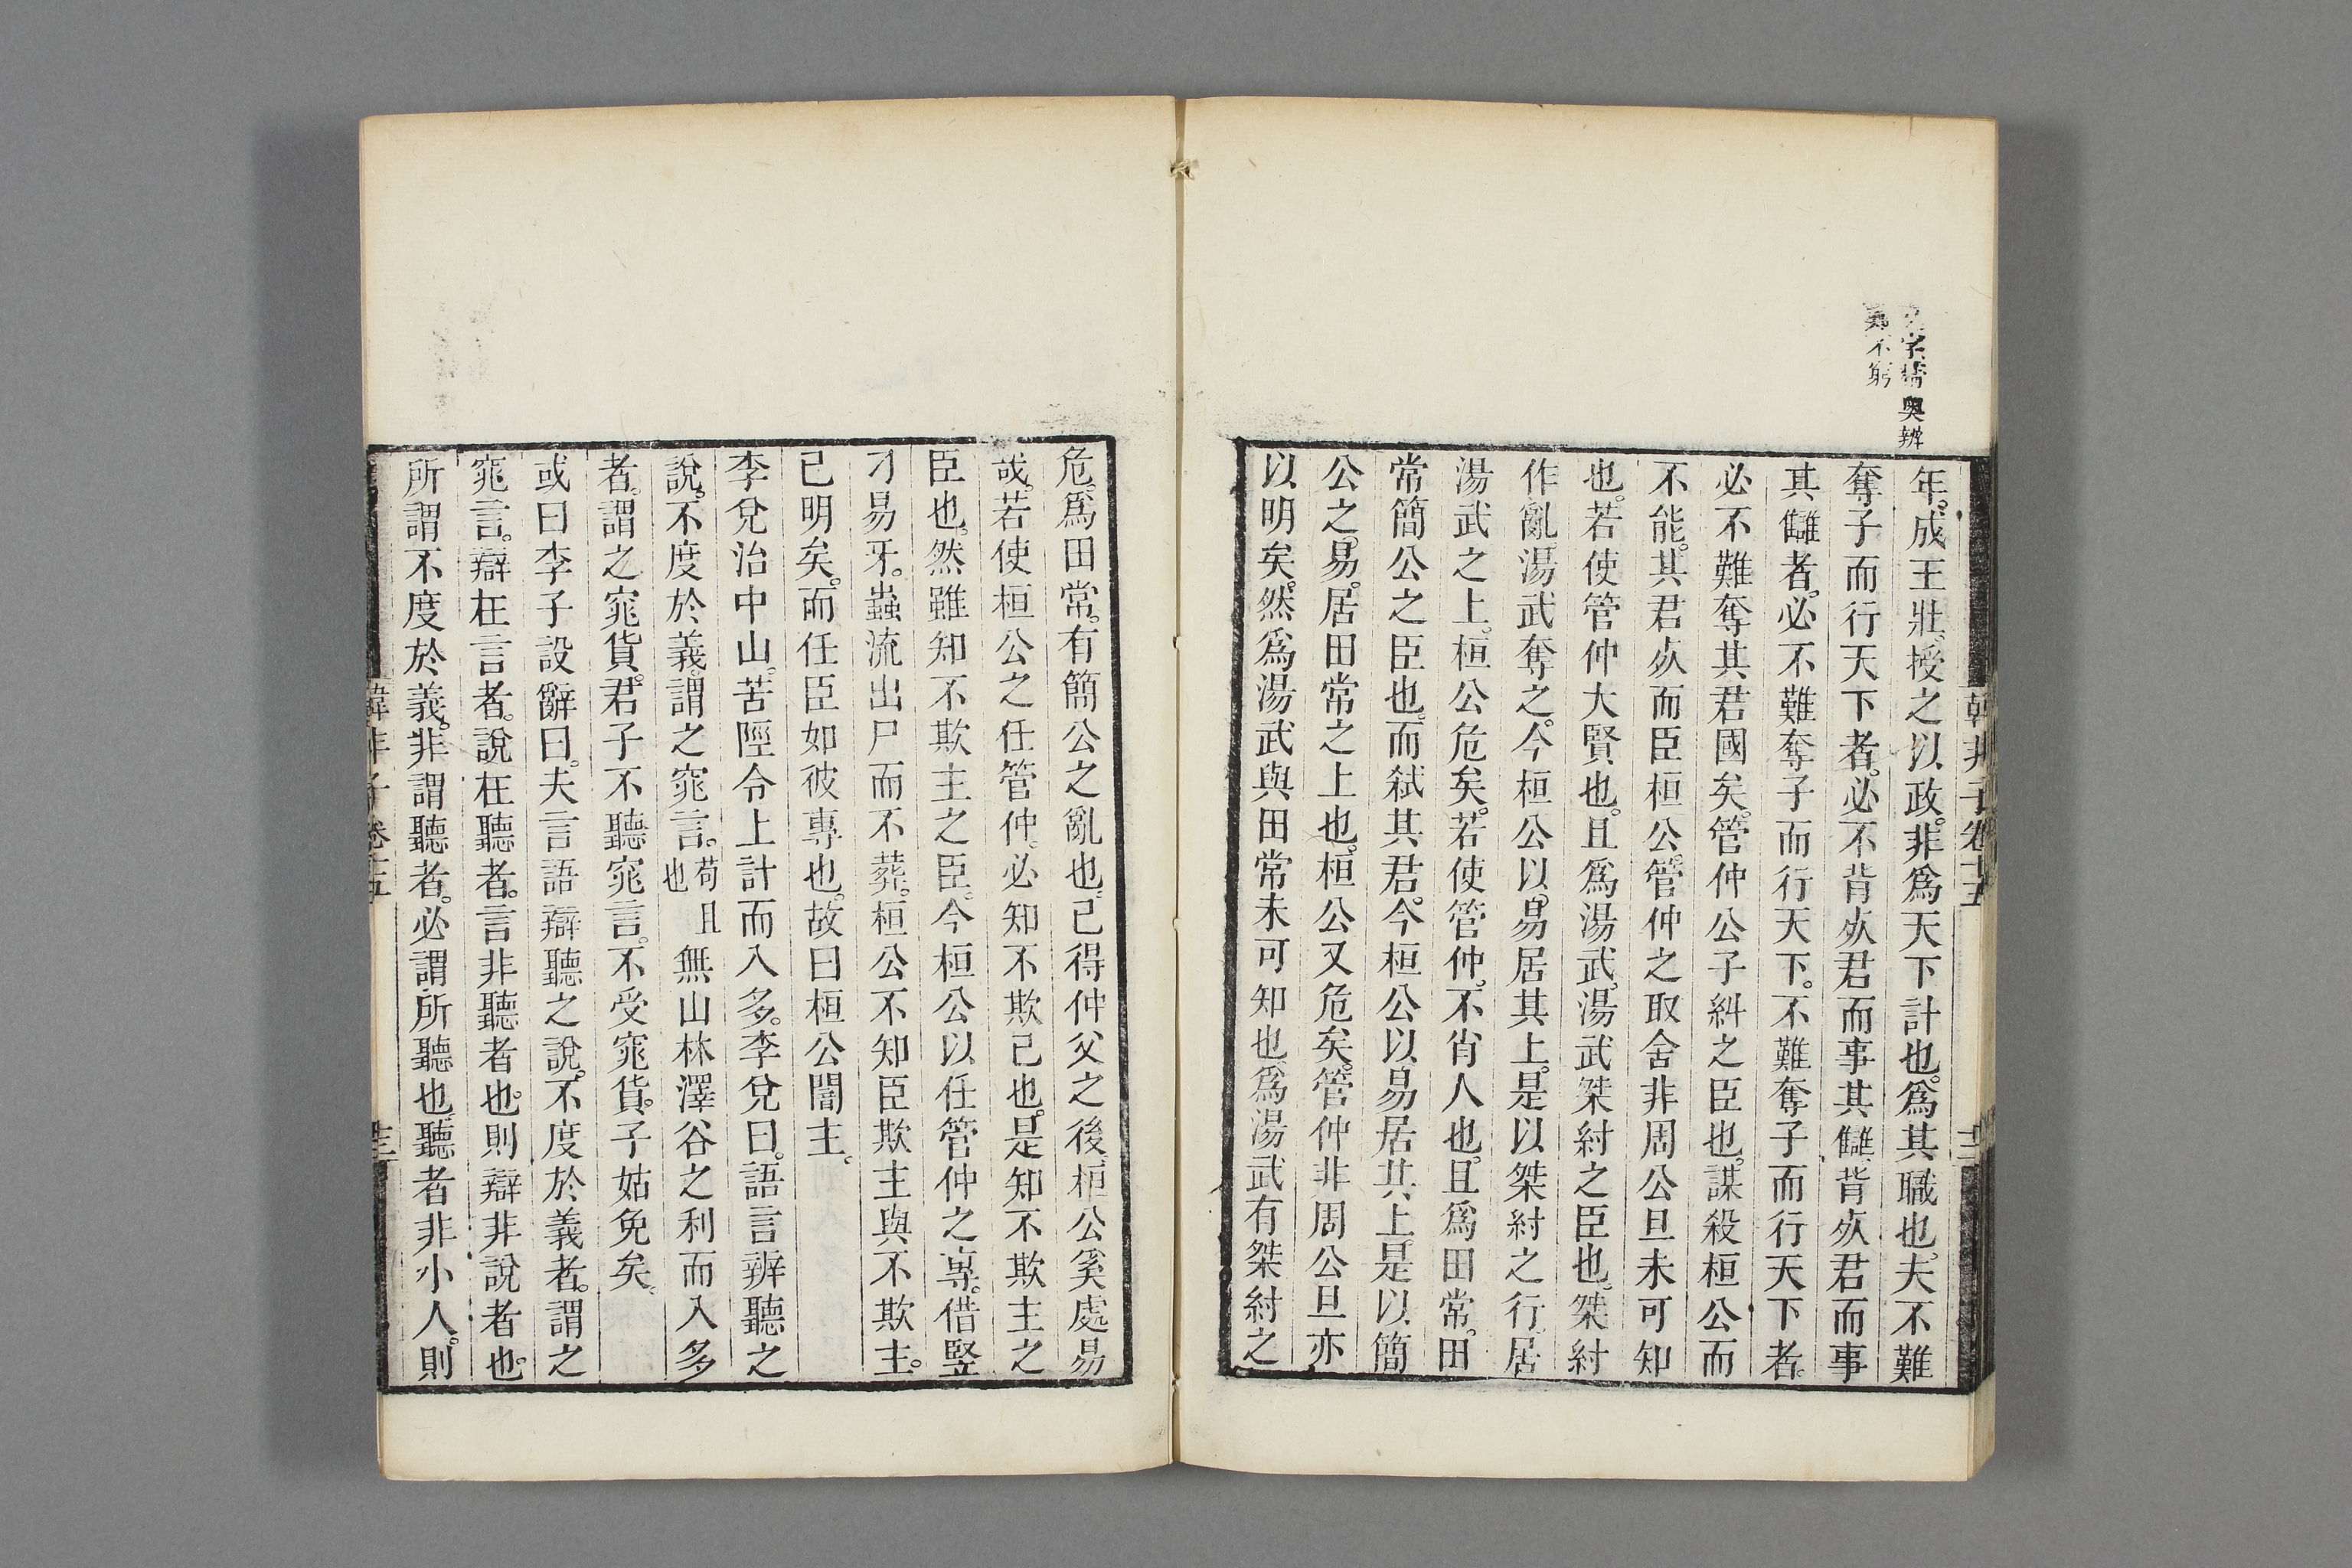 奧辨
難不窮
韓非子卷十五
十二
年。成王壯。授之以政。非爲天下計也。爲其職也。夫不難
奪子而行天下者。必不背死君而事其讎。背死君而事
其讎者。必不難奪子而行天下。不難奪子而行天下者。
必不難奪其君國矣。管仲公子糾之臣也。謀殺桓公而
不能。其君死而臣桓公。管仲之取舍非周公旦未可知
也。若使管仲大賢也。且爲湯武。湯武桀紂之臣也。桀紂
作亂。湯武奪之。今桓公以易居其上。是以桀紂之行。居
湯武之上。桓公危矣。若使管仲。不肖人也。且爲田常。田
常簡公之臣也。而弑其君。今桓公以易居其上。是以簡
公之易。居田常之上也。桓公又危矣。管仲非周公旦亦
以明矣。然爲湯武與田常未可知也。爲湯武有桀紂之
危。爲田常。有簡公之亂也。已得仲父之後。桓公奚處易
哉。若使桓公之任管仲。必知不欺己也。是知不欺主之
臣也。然雖知不欺主之臣。今桓公以任管仲之專。借豎
刁易牙。蟲流出尸而不葬。桓公不知臣欺主與不欺主。
已明矣。而任臣如彼專也。故曰桓公闇主。
李兌治中山。苦陘令上計而入多。李兌曰。語言辨聽之
說。不度於義。謂之窕言。苟且也無山林澤谷之利而入多
者。謂之窕貨。君子不聽窕言。不受窕貨。子姑免矣。
或曰李子設辭曰。夫言語辯聽之說。不度於義者。謂之
窕言。辯在言者。說在聽者。言非聽者也。則辯非說者也。
所謂不度於義。非謂聽者。必謂所聽也。聽者非小人。則
韓非子卷十五
十三